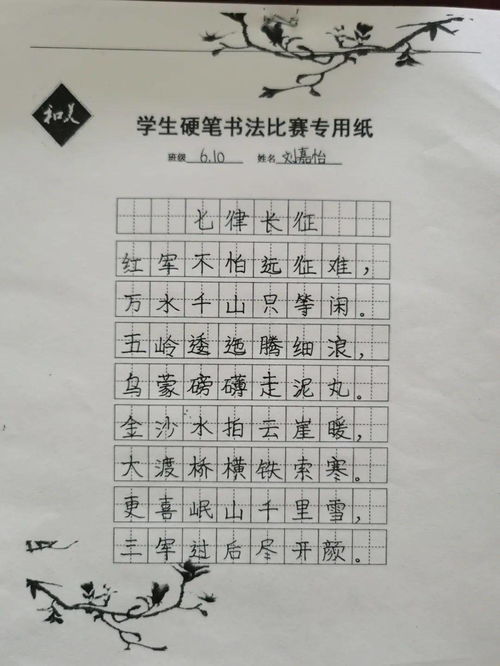 和美
学生硬笔书法比赛专用纸
班级 6.10 姓名 刘嘉怡
七律长征
红军不怕远征难，
万水千山只等闲。
五岭逶迤腾细浪，
乌蒙磅礴走泥丸。
金沙水拍云崖暖，
大渡桥横铁索寒。
更喜岷山千里雪，
三军过后尽开颜。